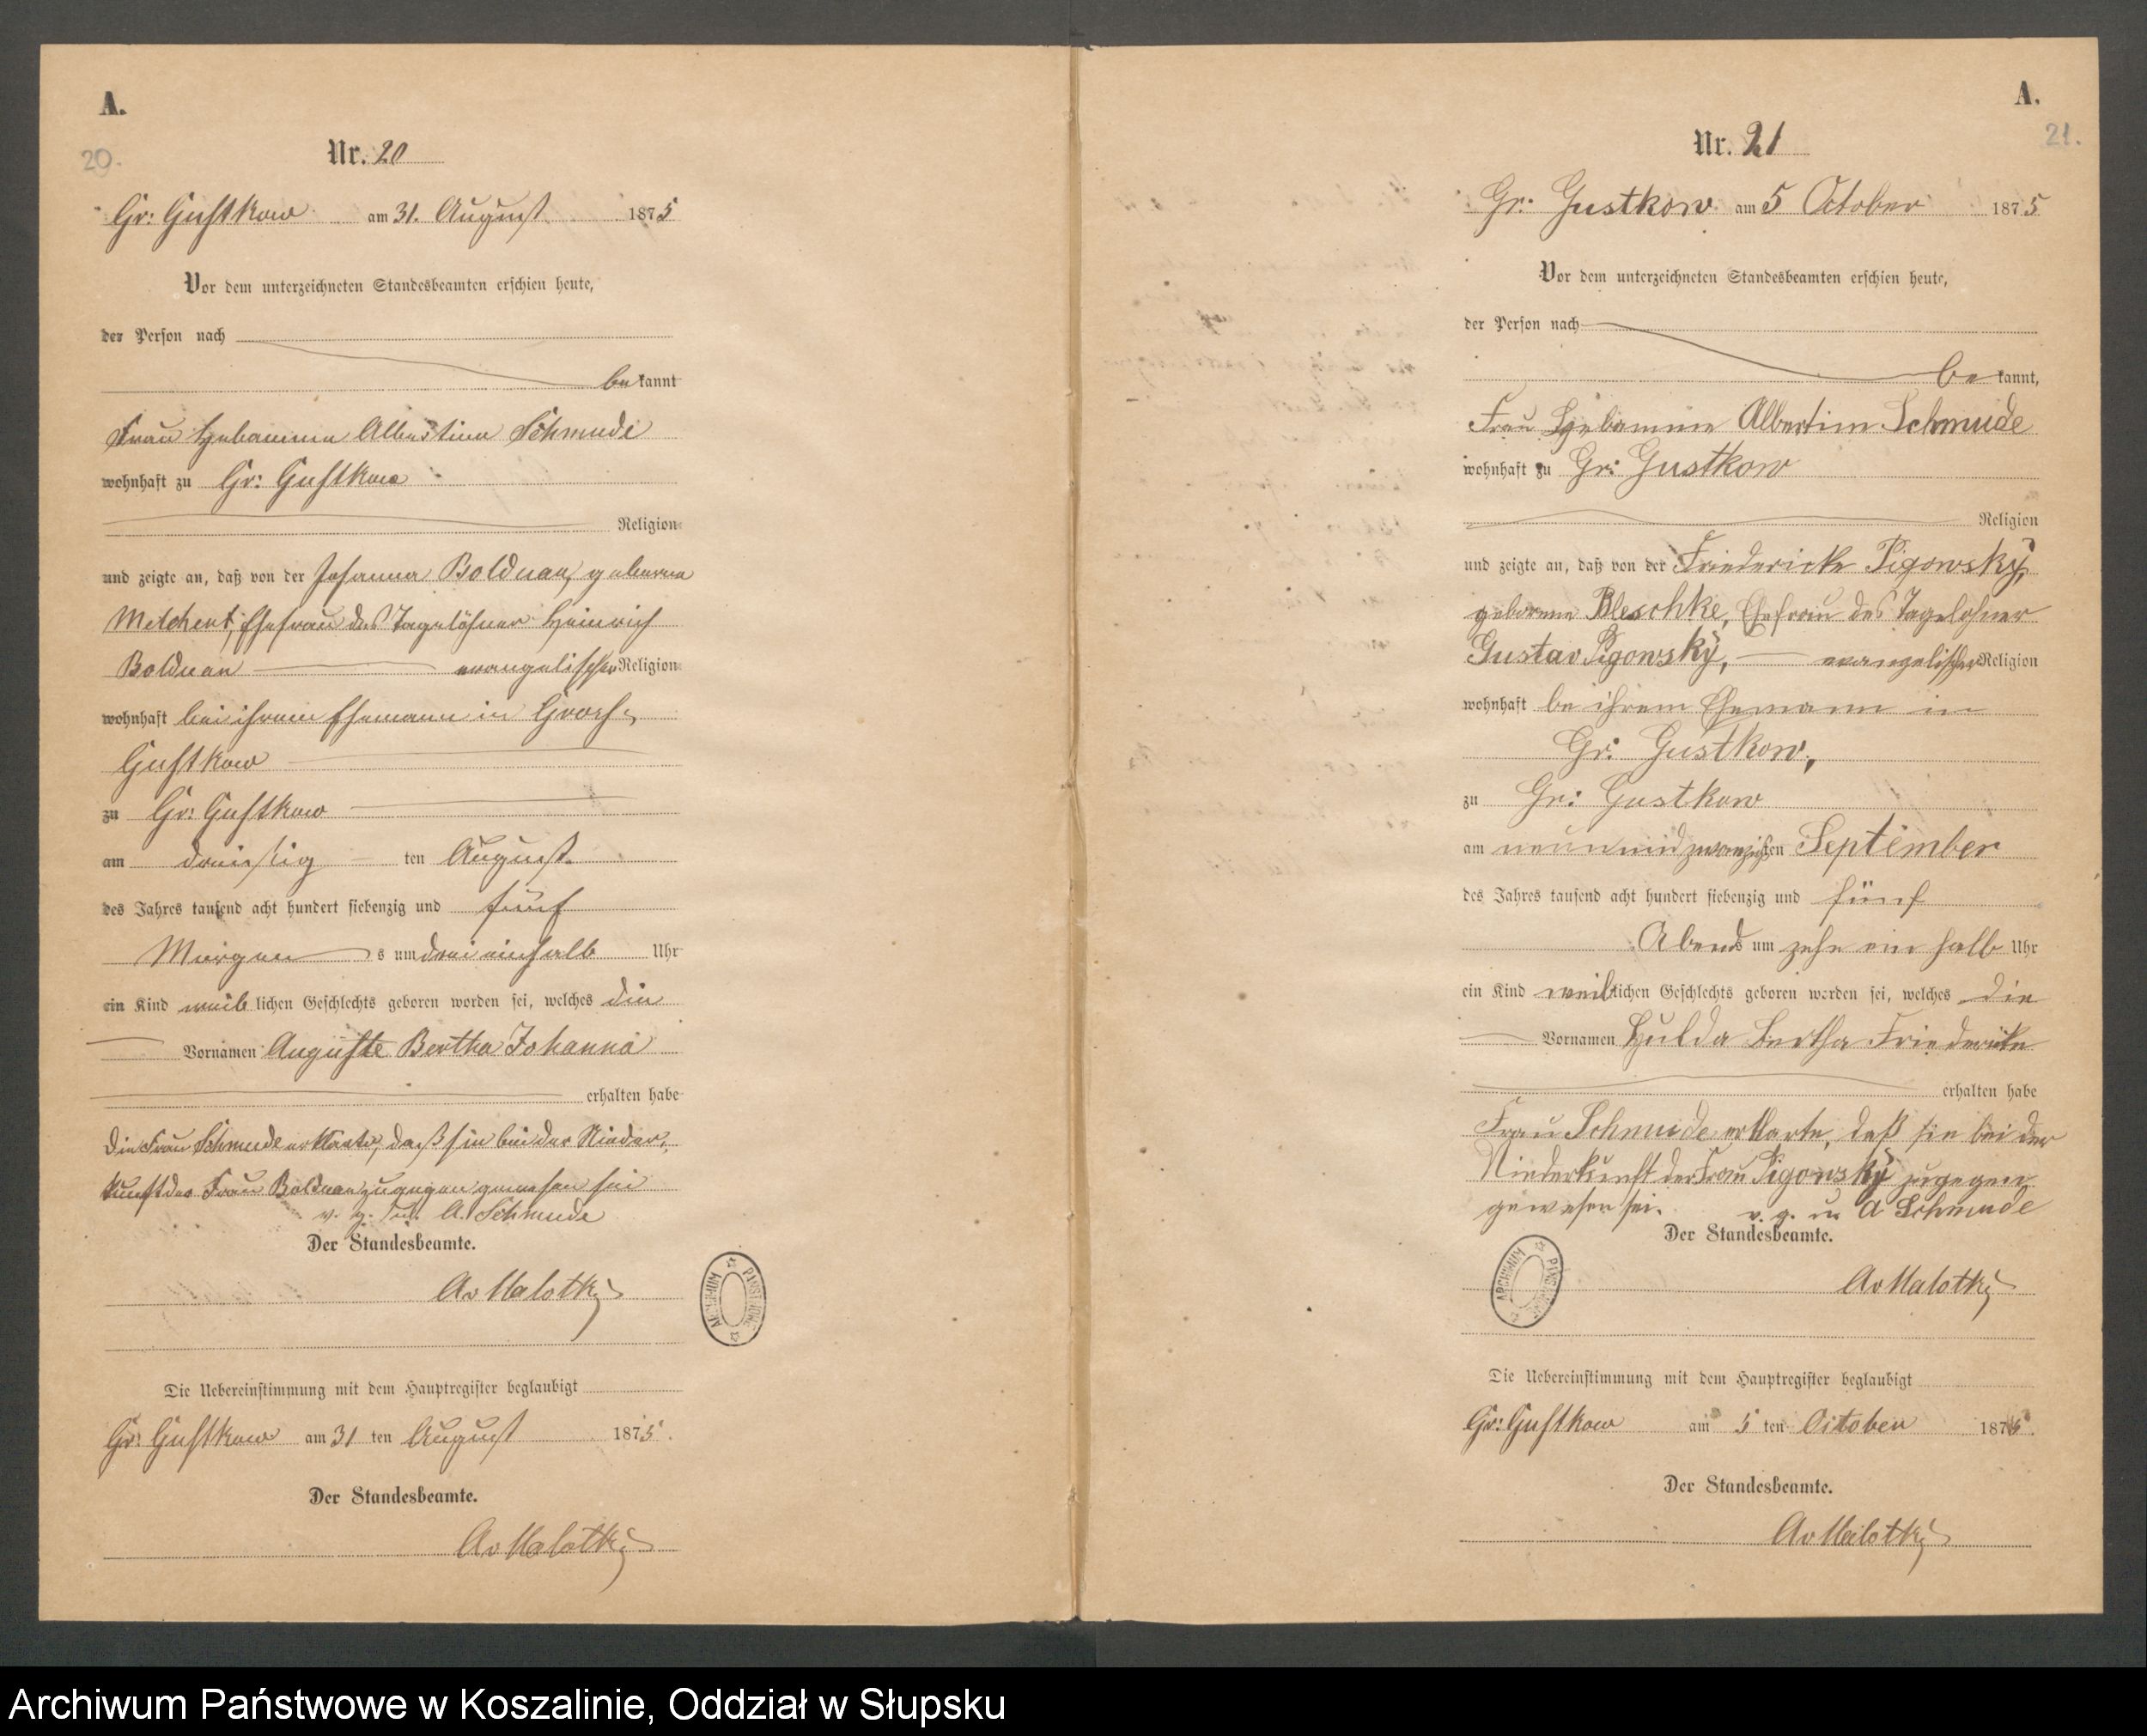 A.
20.
Nr. 20
Gr: Gustkow am 31. August 1875
Vor dem unterzeichneten Standesbeamten erschien heute,
der Person nach
be kannt
Frau Hebamme Albertine Schmude
wohnhaft zu Gr: Gustkow
Religion
und zeigte an, daß von der Johanna Bolduan, geborene
Melchert, Ehefrau des Tagelöhner Heinrich
Bolduan evangelischer Religion
wohnhaft bei ihrem Ehemann in Gross-
Gustkow
zu Gr: Gustkow
am dreissig ten August
des Jahres tausend acht hundert siebenzig und fünf
Morgen s um drei einhalb Uhr
ein Kind weib lichen Geschlechts geboren worden sei, welches die
Vornamen Auguste Bertha Johanna
erhalten habe
Die Frau Schmude erklärte, daß sie bei der Nieder-
kunft der Frau Bolduan zugegen gewesen sei
v. g. u. A. Schmude
Der Standesbeamte.
Av Malotky
ARCHIWUM PAŃSTWOWE
Die Uebereinstimmung mit dem Hauptregister beglaubigt
Gr: Gustkow am 31 ten August 1875.
Der Standesbeamte.
Av Malotky
A.
21.
Nr. 21
Gr: Gustkow am 5 October 1875
Vor dem unterzeichneten Standesbeamten erschien heute,
der Person nach
be kannt,
Frau Hebamme Albertine Schmude
wohnhaft zu Gr: Gustkow
Religion
und zeigte an, daß von der Friedericke Pigowsky,
geborene Bleschke, Ehefrau des Tagelohner
Gustav Pigowsky, evangelischer Religion
wohnhaft bei ihrem Ehemann in
Gr: Gustkow,
zu Gr: Gustkow
am neunundzwanzigsten September
des Jahres tausend acht hundert siebenzig und fünf
Abends um zehn ein halb Uhr
ein Kind weiblichen Geschlechts geboren worden sei, welches die
Vornamen Hulda Bertha Friedericke
erhalten habe
Frau Schmude erklärte, daß sie bei der
Niederkunft der Frau Pigowsky zugegen
gewesen sei. v. g. u. A Schmude
Der Standesbeamte.
Av Malotky
ARCHIWUM PAŃSTWOWE
Die Uebereinstimmung mit dem Hauptregister beglaubigt
Gr: Gustkow am 5 ten October 1875.
Der Standesbeamte.
Av Malotky
Archiwum Państwowe w Koszalinie, Oddział w Słupsku